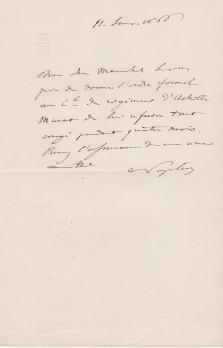 11 Janv. 1866
Mon cher Maréchal, je vous
prie de donner l'ordre formel
au Cel du régiment d'Achille
Murat de lui refuser tout
congé pendant quatre mois.
l'assurance de mon
amitié
Napoléon